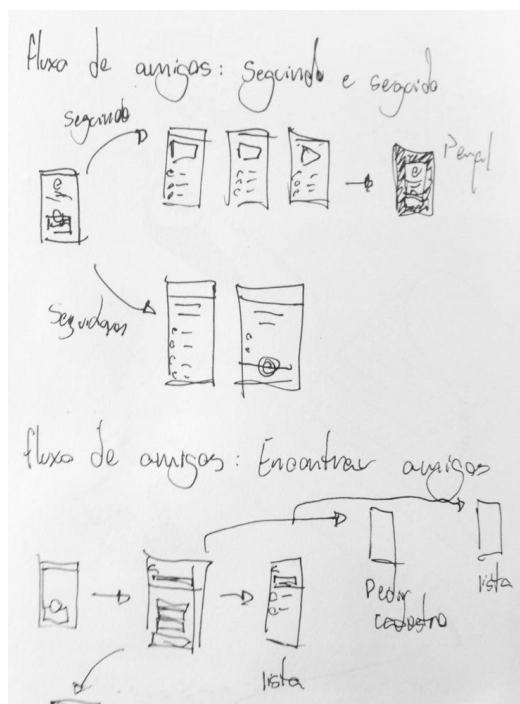 fluxo de amigos: Seguindo e seguido
Seguindo
Perfil
Seguidores
fluxo de amigos: Encontrar amigos
Pedir
cadastro
lista
lista